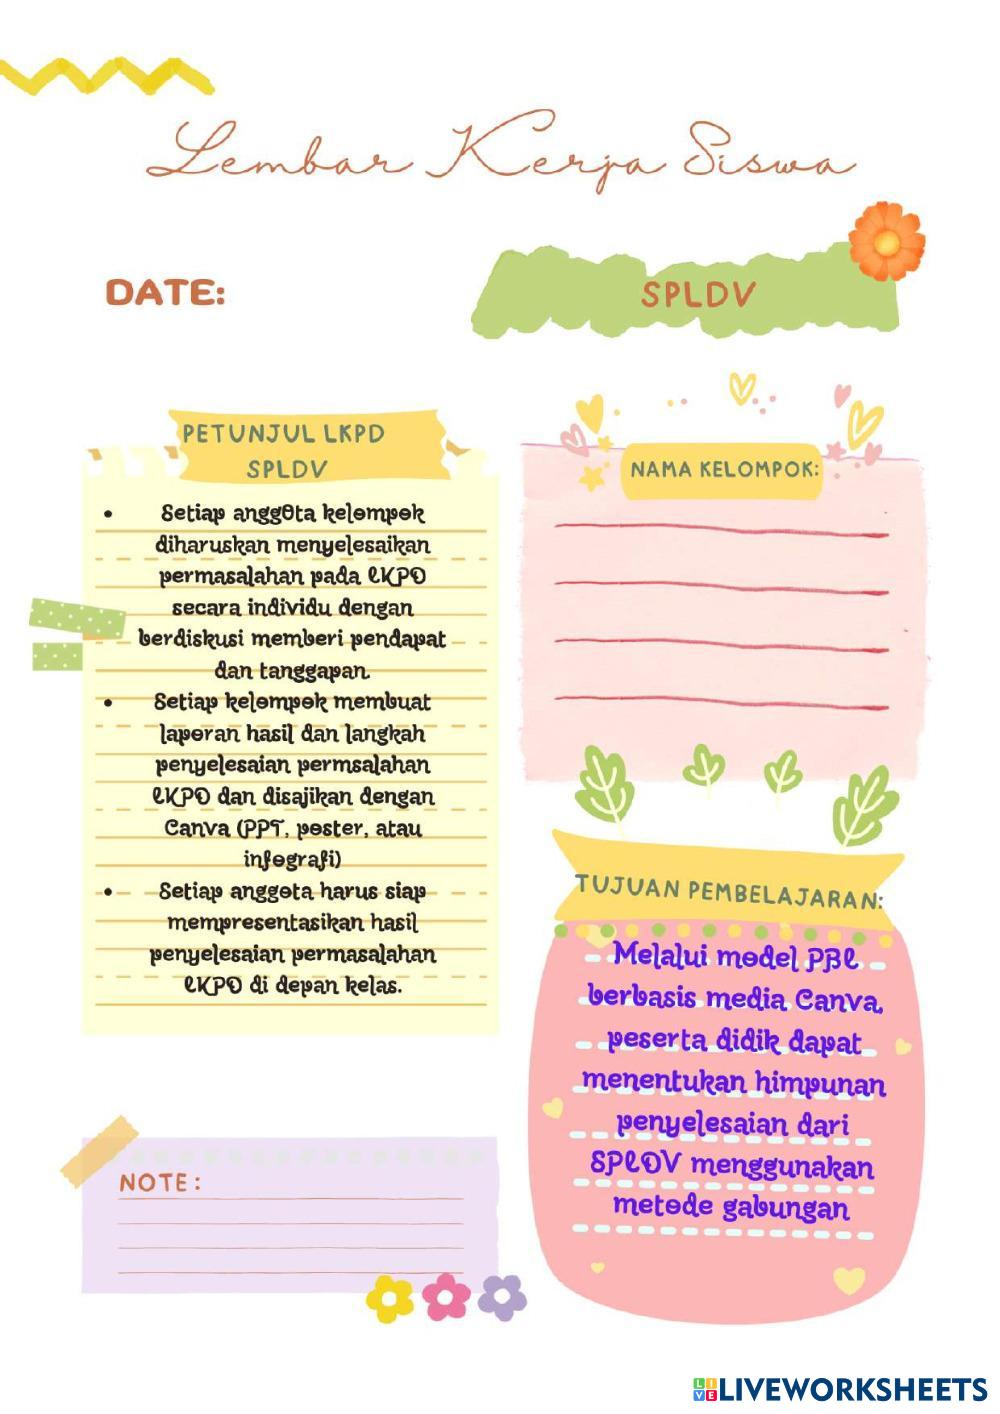 Lembar Kerja Siswa
DATE:
SPLDV
PETUNJUL LKPD
SPLDV
• Setiap anggota kelompok
diharuskan menyelesaikan
permasalahan pada LKPD
secara individu dengan
berdiskusi memberi pendapat
dan tanggapan.
• Setiap kelompok membuat
laporan hasil dan langkah
penyelesaian permsalahan
LKPD dan disajikan dengan
Canva (PPT, poster, atau
infografi)
• Setiap anggota harus siap
mempresentasikan hasil
penyelesaian permasalahan
LKPD di depan kelas.
NOTE:
NAMA KELOMPOK:
TUJUAN PEMBELAJARAN:
Melalui model PBL
berbasis media Canva,
peserta didik dapat
menentukan himpunan
penyelesaian dari
SPLDV menggunakan
metode gabungan
LIVE LIVEWORKSHEETS